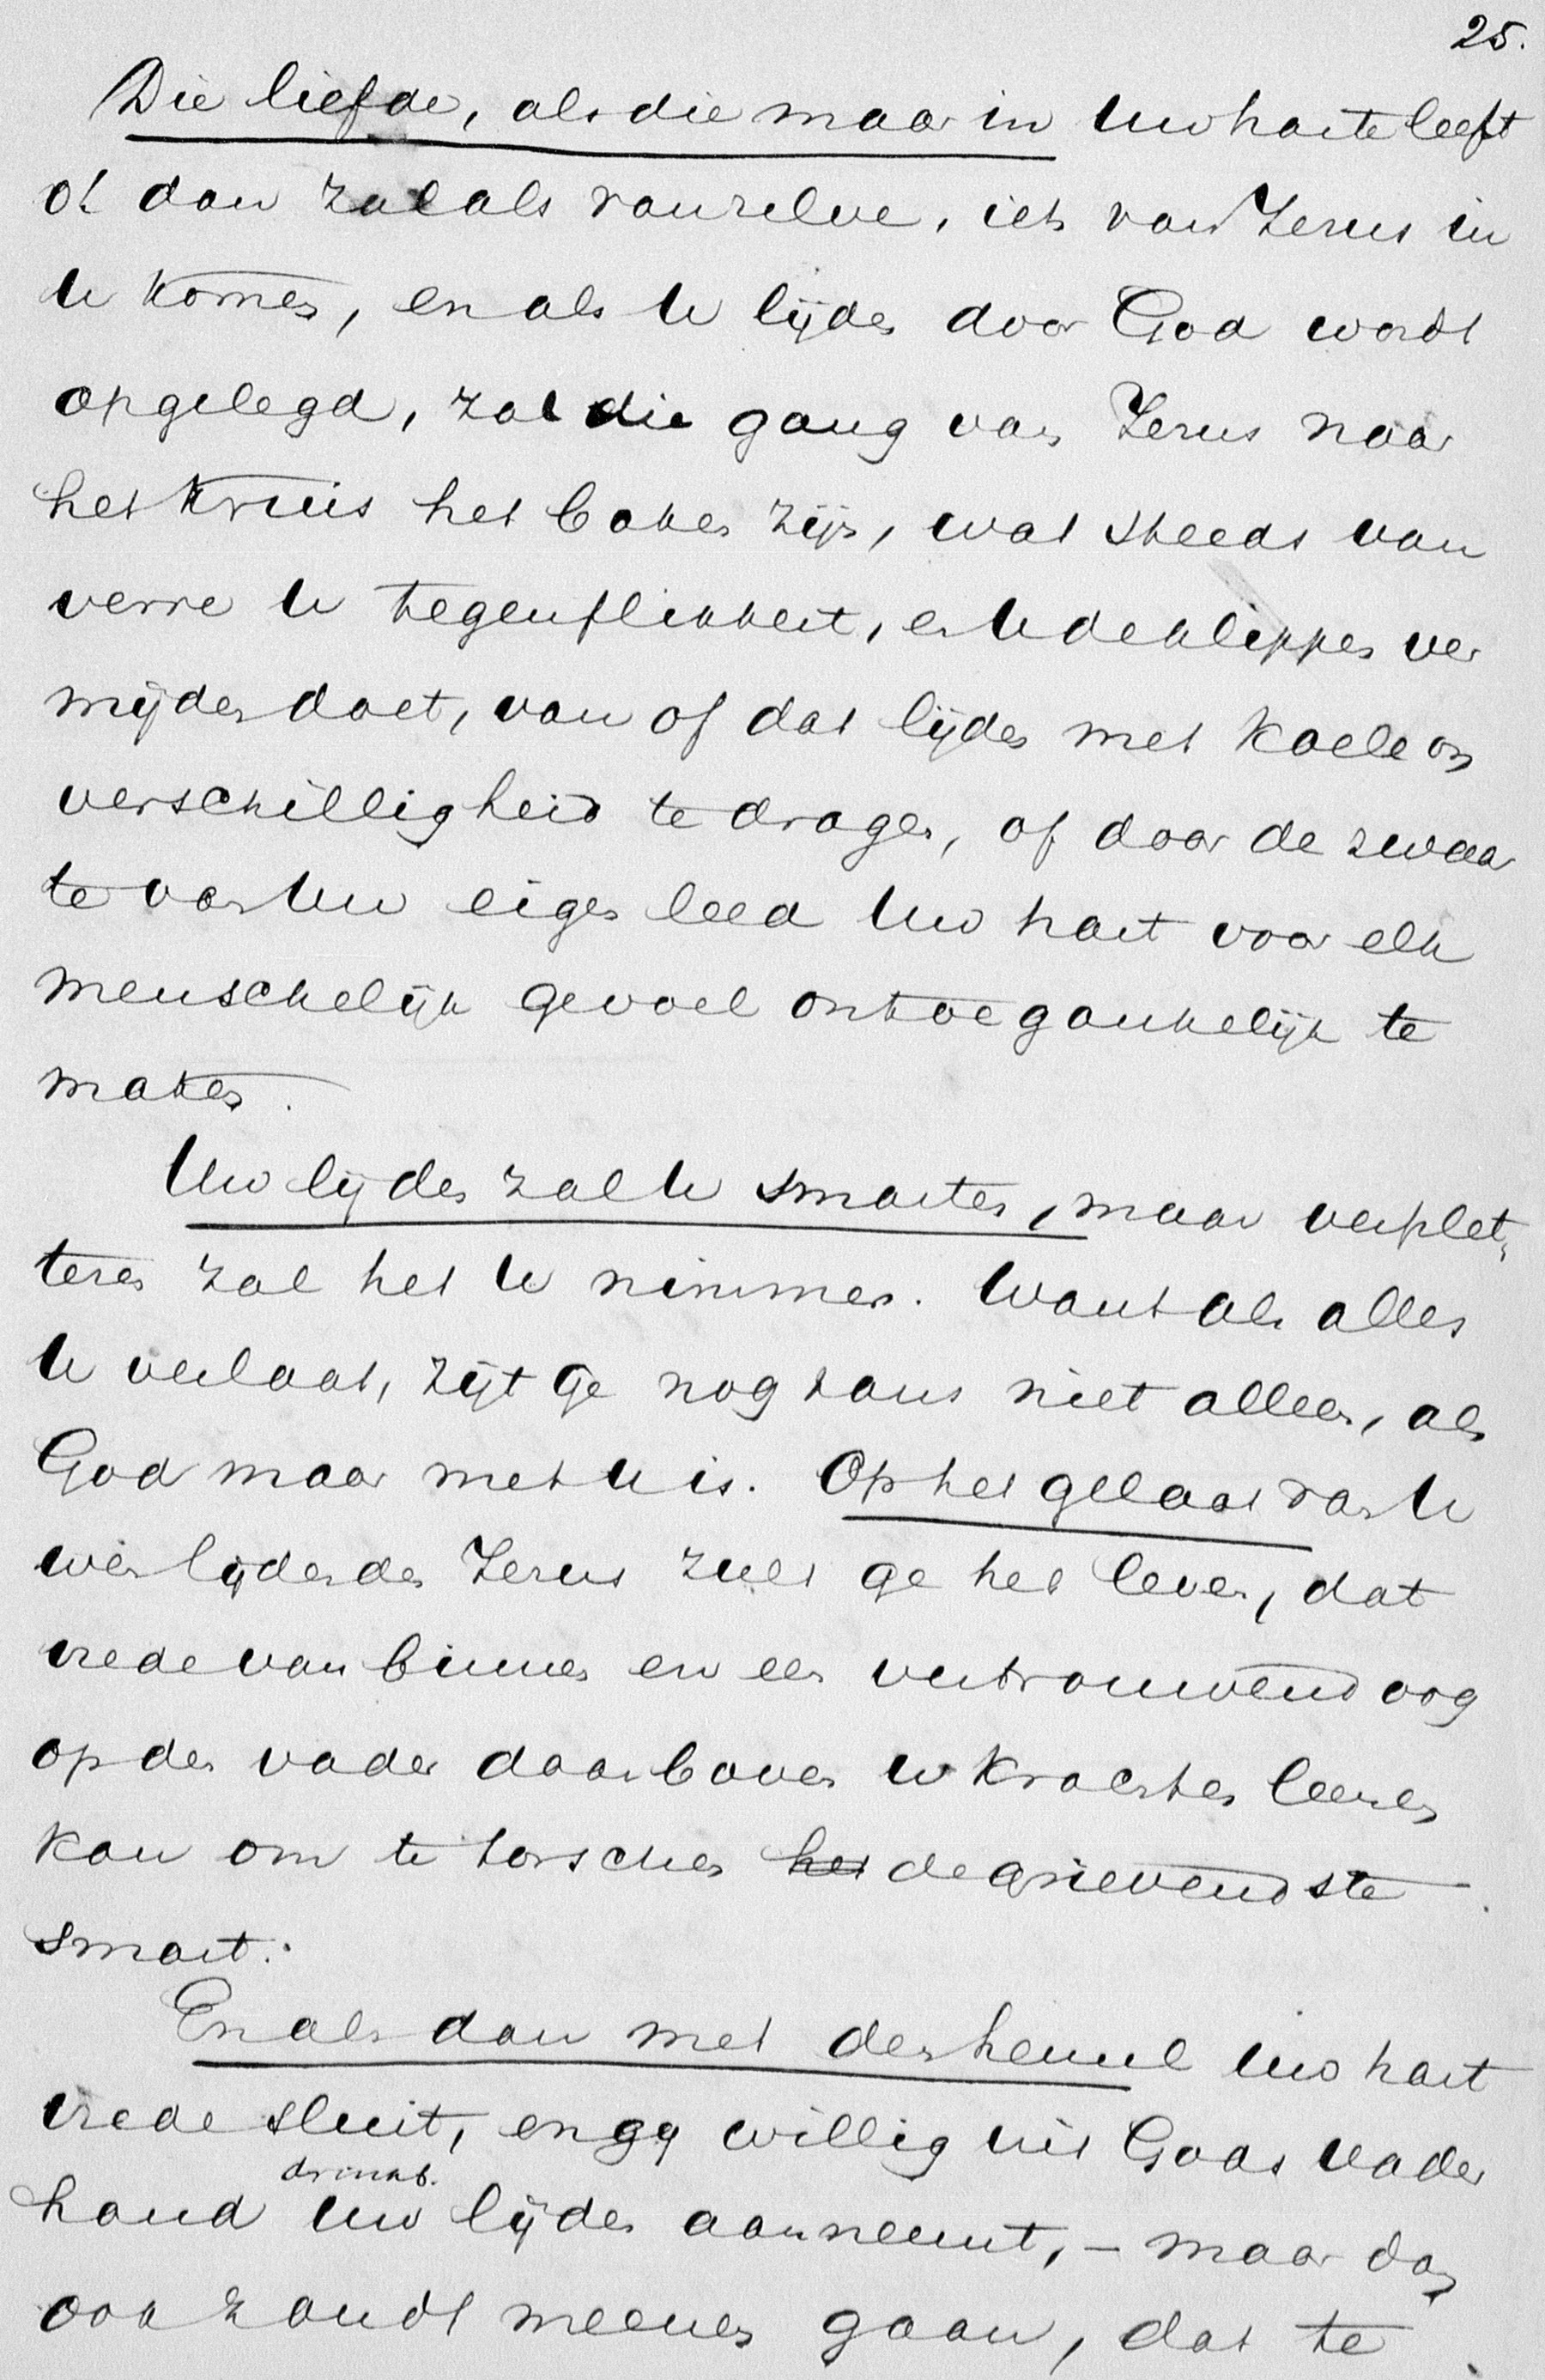 25.
Die liefde, als die maar in Uw harte leeft
o! dan zal als vanzelve, iets van Jezus in
U komen, en als U lijden door God wordt
opgelegd, zal die gang van Jezus naar
het kruis het baken zijn, wat steeds van
verre U tegenflikkert, en U de klippen ver
mijden doet, van of dat lijden met koele on
verschilligheid te dragen, of door de zwaar
te van Uw eigen leed Uw hart voor elk
menschelijk gevoel ontoegankelijk te
maken.
Uw lijden zal U smarten, maar verplet-
teren zal het U nimmer. Want als alles
U verlaat, zijt Ge nogtans niet alleen, als
God maar met U is. Op het gelaat van U
wen lijdenden Jezus zult ge het lezen, dat
vrede van binnen en een vertrouwend oog
op den vader daarboven U krachten leenen
kan om te torschen het de grievendste
smart.
En als dan met den hemel Uw hart
vrede sluit, en gij willig uit Gods vader
drinkb.
hand Uw lijden aanneemt, – maar dan
ook zoudt meenen gaan, dat te